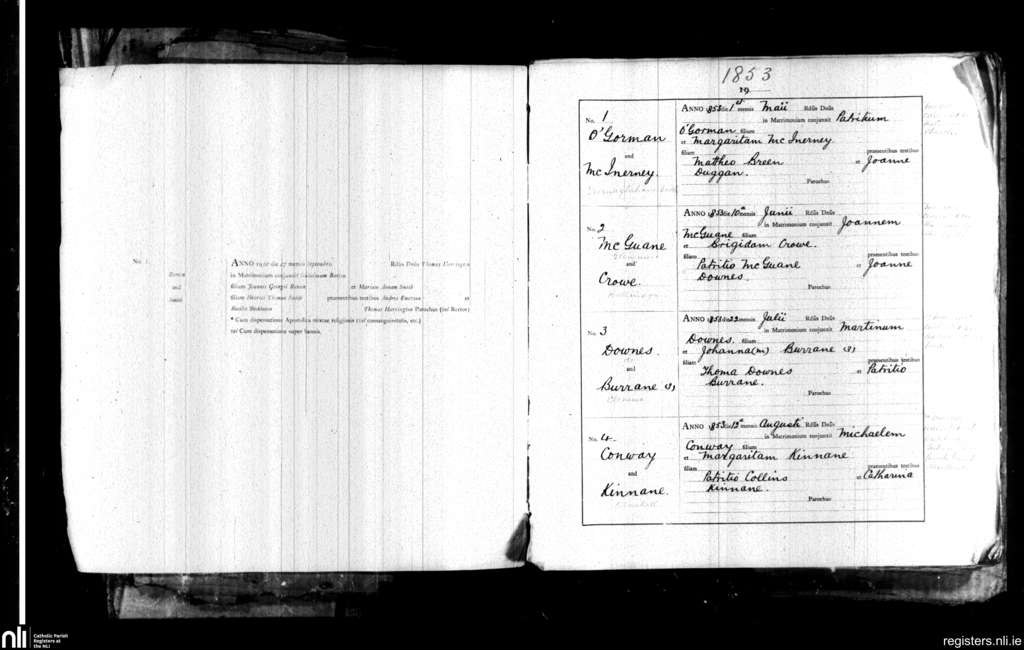 No. 1.
Benton
and
Smith
ANNO 1910 die 27 mensis Septembris Rdſſs Dnſs Thomas Harrington
in Matrimonium conjunxit Gulielmum Benton
filium Joannis Georgii Benton et Mariam Annam Smith
filiam Henrici Thomae Smith praesentibus testibus Andrea Emerson et
Thomas Harrington Parochus (vel Rector)
* Cum dispensatione Apostolica mixtae religionis (vel consanguinitatis, etc.)
vel Cum dispensatione super bannis.
1853
19
No. 1
O'Gorman
and
Mc Inerney.
ANNO 1853 die 1st mensis Maii Rdſſs Dnſs
in Matrimonium conjunxit Patrikum
O'Gorman filium
et Margaritam Mc Inerney
filiam praesentibus testibus
Mattheo Breen et Joanne
Duggan.
Parochus
No. 2
Mc Guane
and
Crowe.
ANNO 1853 die 10th mensis Junii Rdſſs Dnſs
in Matrimonium conjunxit Joannem
McGuane filium
et Brigidam Crowe.
filiam praesentibus testibus
Patritio McGuane et Joanne
Downes.
Parochus
No. 3
Downes.
and
Burrane (?)
ANNO 1853 die 22 mensis Julii Rdſſs Dnſs
in Matrimonium conjunxit Martinum
Downes. filium
et Johanna(m) Burrane (?)
filiam praesentibus testibus
Thoma Downes et Patritio
Burrane.
Parochus
No. 4.
Conway
and
Kinnane.
ANNO 1853 die 12th mensis Augusti Rdſſs Dnſs
in Matrimonium conjunxit Michaelem
Conway filium
et Margaritam Kinnane
filiam praesentibus testibus
Patritio Collins et Catharina
Kinnane.
Parochus
nli
Catholic Parish
Registers at
the NLI
registers.nli.ie